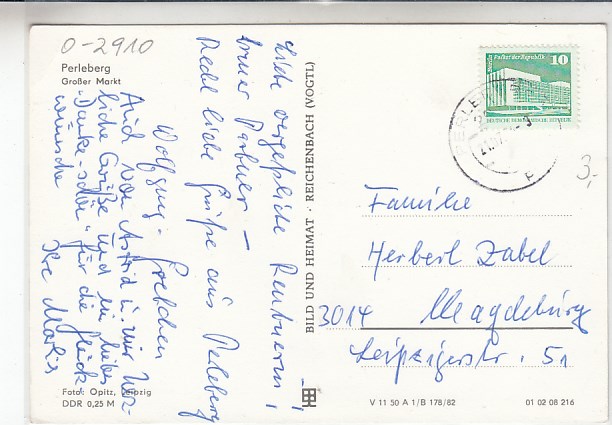 0-2910
Perleberg
Großer Markt
Liebe
Partner –
Recht liebe Grüße aus Perleberg
Wolfgang.
Auch von Astrid u. mir herz-
liche Grüße und ein liebes
"Danke-schön" für die Glück-
wünsche
Ihre
Foto: Opitz, Leipzig
DDR 0,25 M
BILD UND HEIMAT · REICHENBACH (VOGTL)
Palast der Republik 10
DEUTSCHE DEMOKRATISCHE REPUBLIK
3,-
Familie
Herbert Zabel
3014 Magdeburg
Leipzigerstr. 51
V 11 50 A 1/B 178/82
01 02 08 216